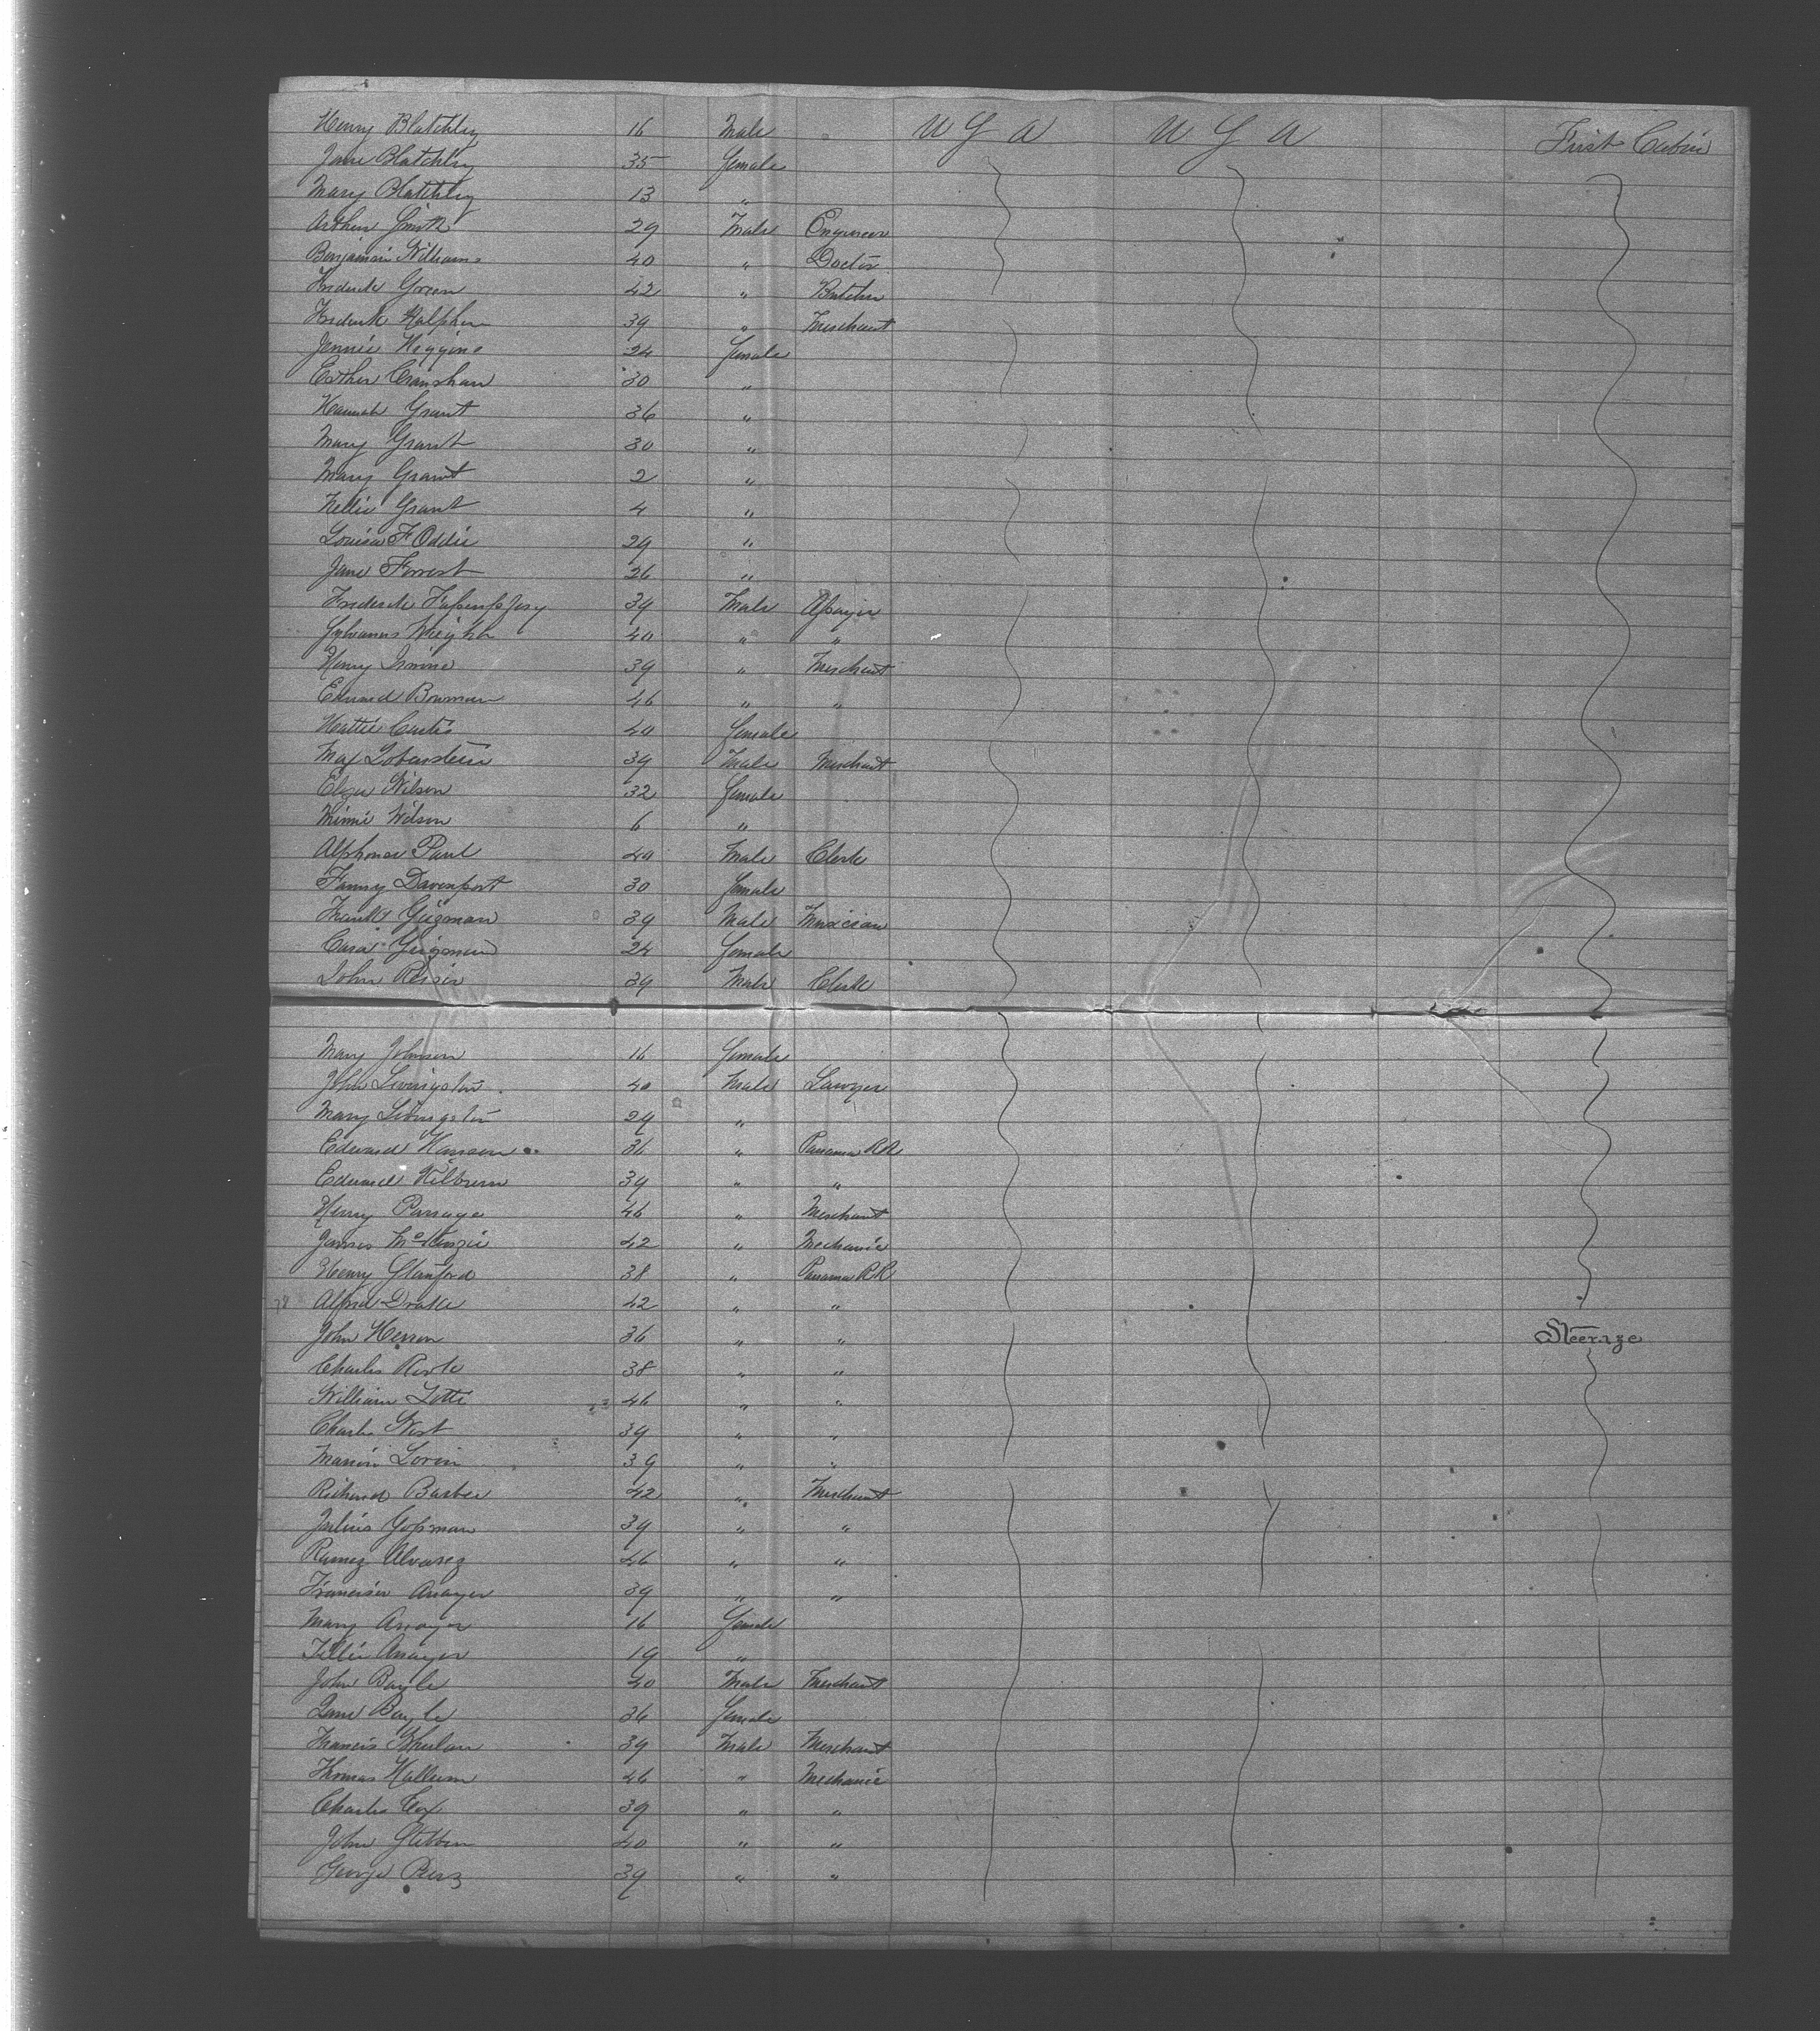 Henry Blatchley 16 Male U S A U S A First Cabin
Jane Blatchley 35 female
Mary Blatchley 13 "
Arthur Smith 29 Male Engineer
Benjamin Williams 40 " Doctor
Frederik Green 42 " Butcher
Frederik Halphen 39 " Merchant
Jennie Higgins 24 female
Esther Cranshaw 30 "
Hannah Grant 36 "
Mary Grant 30 "
Mary Grant 2 "
Nellie Grant 4 "
Louisa F Oddie 29 "
Jane Forrest 26 "
Frederik 39 Male Assayer
Sylvanus Wright 40 " "
Henry Irvine 39 " Merchant
Edward Bowman 46 " "
Hattie Curtis 40 female
Max Lobenstein 39 Male Merchant
Eliza Wilson 32 female
Minnie Wilson 6 "
Alphonse Paul 40 Male Clerk
Fanny Davenport 30 female
Frank Guzman 39 Male Musician
Cara Guzman 24 female
John 39 Male Clerk
Mary Johnson 16 female
John Livingston 40 Male Lawyer
Mary Livingston 24 "
Edward Hanson 36 " Panama RR
Edward Kilburn 39 " "
Henry Parraga 46 " Merchant
James McKenzie 42 " Mechanic
Henry Stanford 38 " Panama RR
78 Alfred Drake 42 " "
John Herron 36 " " Steerage
Charles 38 " "
William Lotti 46 " "
Charles West 39 " "
Marion Lorin 39 " "
Richard Barber 42 " Merchant
Julius Gossman 39 " "
Ramez Alvarez 46 " "
Francisco Anaya 39 " "
Mary 16 female
Tillie 19 "
John Bayle 40 Male Merchant
Jane Bayle 36 female
Francis Whelan 39 Male Merchant
Thomas Hallum 46 " Mechanic
Charles Cox 39 " "
John Stebben 40 " "
George 39 " "